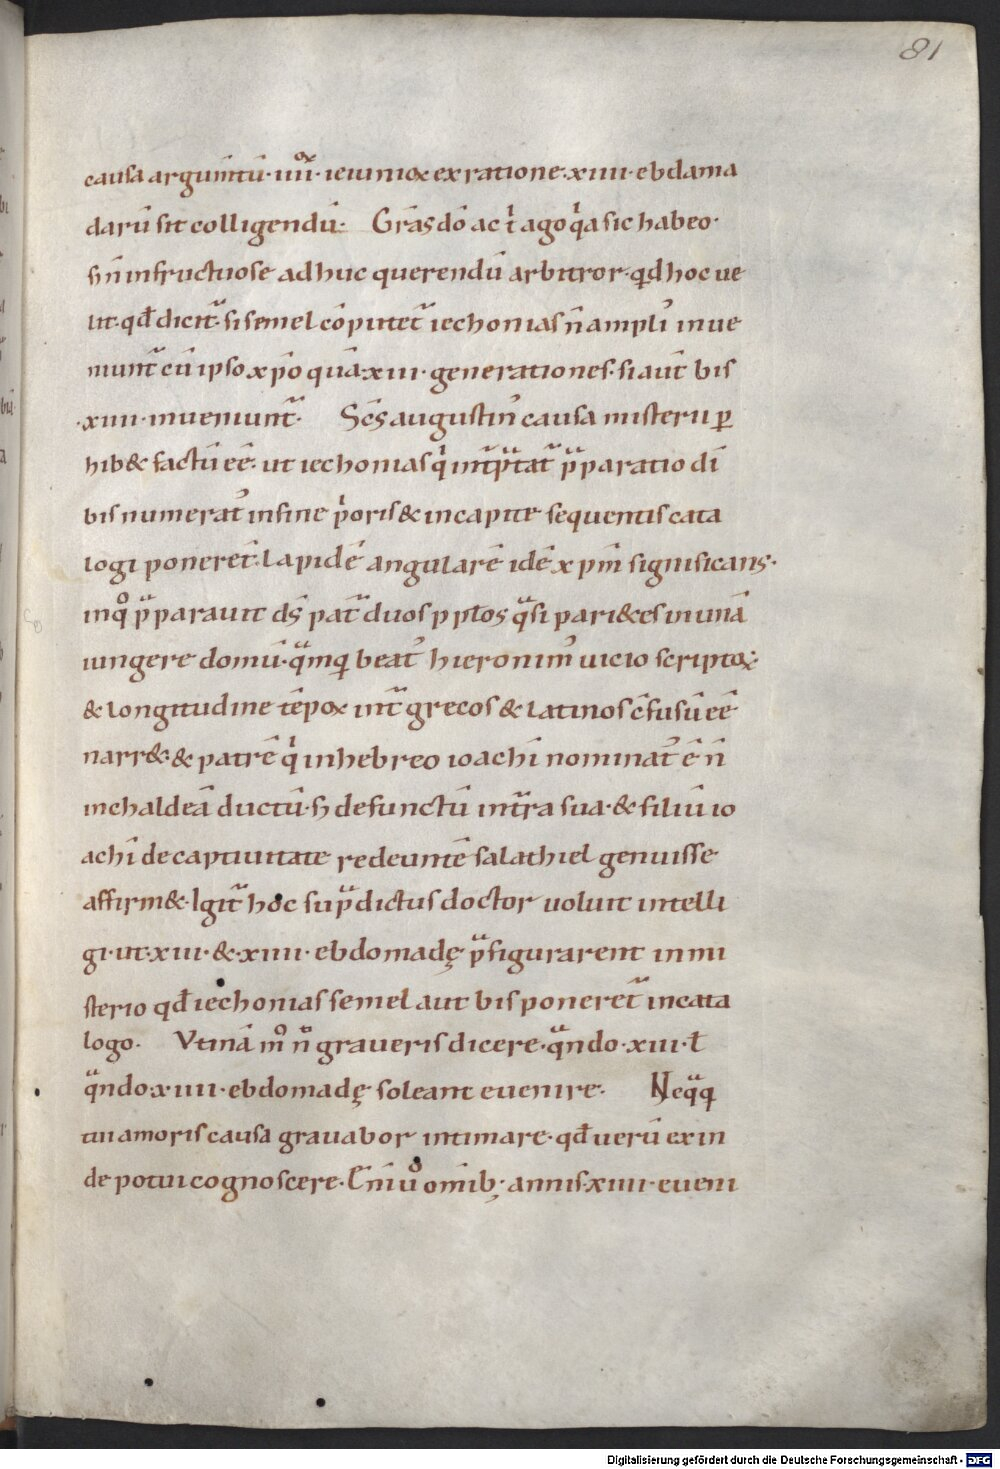 81
causa argumtū · iiii^or · ieiunioꝝ ex ratione · xiiii · ebdama
darū sit colligendū · Grās dō ac tⁱ ago qⁱa sic habeo ·
sꝫ n̄ infructuose adhuc querendū arbitror · qd hoc ue
lit · qđ dicit᷑ · si semel cōputet᷑ iechonias n̄ ampliʼ inue
niunt᷑ cū ipso xp̄o quā · xiii · generationes · si aut̄ bis
· xiiii · inueniunt᷑ · Sc̄s augustinʼ causa misterii ꝑ
hib& factū eē · ut iechonias qⁱ int̄p̄tat᷑ p̄paratio dī
bis numeratʼ in fine pⁱoris & in capite sequentis cata
logi poneret᷑ · lapidē angularē idē xp̄m significans ·
in q°  p̄parauit ds̄ pat᷑ duos pp̄los qᵃsi pari&es in unā
iungere domū · qᵃmqꝫ beatʼ hieronimʼ uicio scriptoꝝ ·
& longitudine tēpoꝝ int᷑ grecos & latinos c̄fusū eē
narr& · & patrē qⁱ in hebreo ioachī nominatʼ ē n̄
in chaldeā ductū · sꝫ defunctū in t᷑ra sua · & filiū io
achī de captiuitate redeuntē salathiel genuisse
affirm& · Igit᷑ hoc sup̄dictus doctor uoluit intelli
gi · ut · xiii · & · xiiii · ebdomadę p̄figurarent in mi
sterio qđ iechonias semel aut bis poneret᷑ in cata
logo · Vtinā m° n̄ graueris dicere · qᵃndo · xiii · ł
qᵃndo · xiiii · ebdomadę soleant euenire · Neqᵃqꝫ
tui amoris causa grauabor intimare · qđ uerū exin
de potui cognoscere · Eni u° omīb; · annis · xiiii · eueni
Digitalisierung gefördert durch die Deutsche Forschungsgemeinschaft - DFG